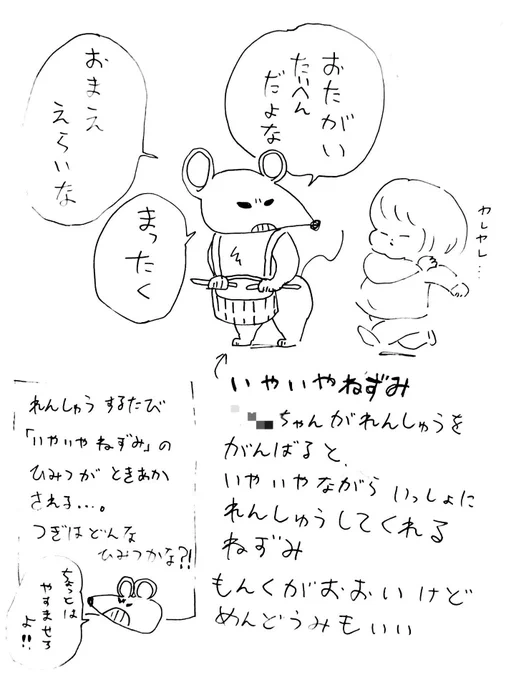 おたがい
たいへん
だよな
おまえ
えらいな
まったく
ヤレヤレ…
いやいやねずみ
ちゃんがれんしゅうを
がんばると、
いやいやながら いっしょに
れんしゅうしてくれる
ねずみ
もんくがおおいけど
めんどうみもいい
れんしゅう するたび
「いやいや ねずみ」の
ひみつが ときあか
される…。
つぎはどんな
ひみつかな?!
ちょっとは
やすませろ
よ!!